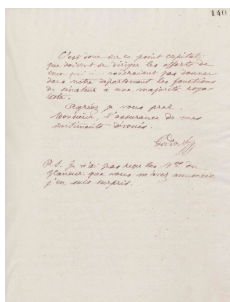 140
C'est donc sur ce point capital,
que doivent se diriger les efforts de
ceux qui ne voudraient pas donner
dans notre département les fonctions
de sénateur à une majorité roya-
liste.
Agréez je vous prie
Monsieur, l'assurance de mes
sentiments dévoués.
P.S. Je n'ai pas reçu les Nos du
Glaneur que vous m'avez annoncés
j'en suis surpris.